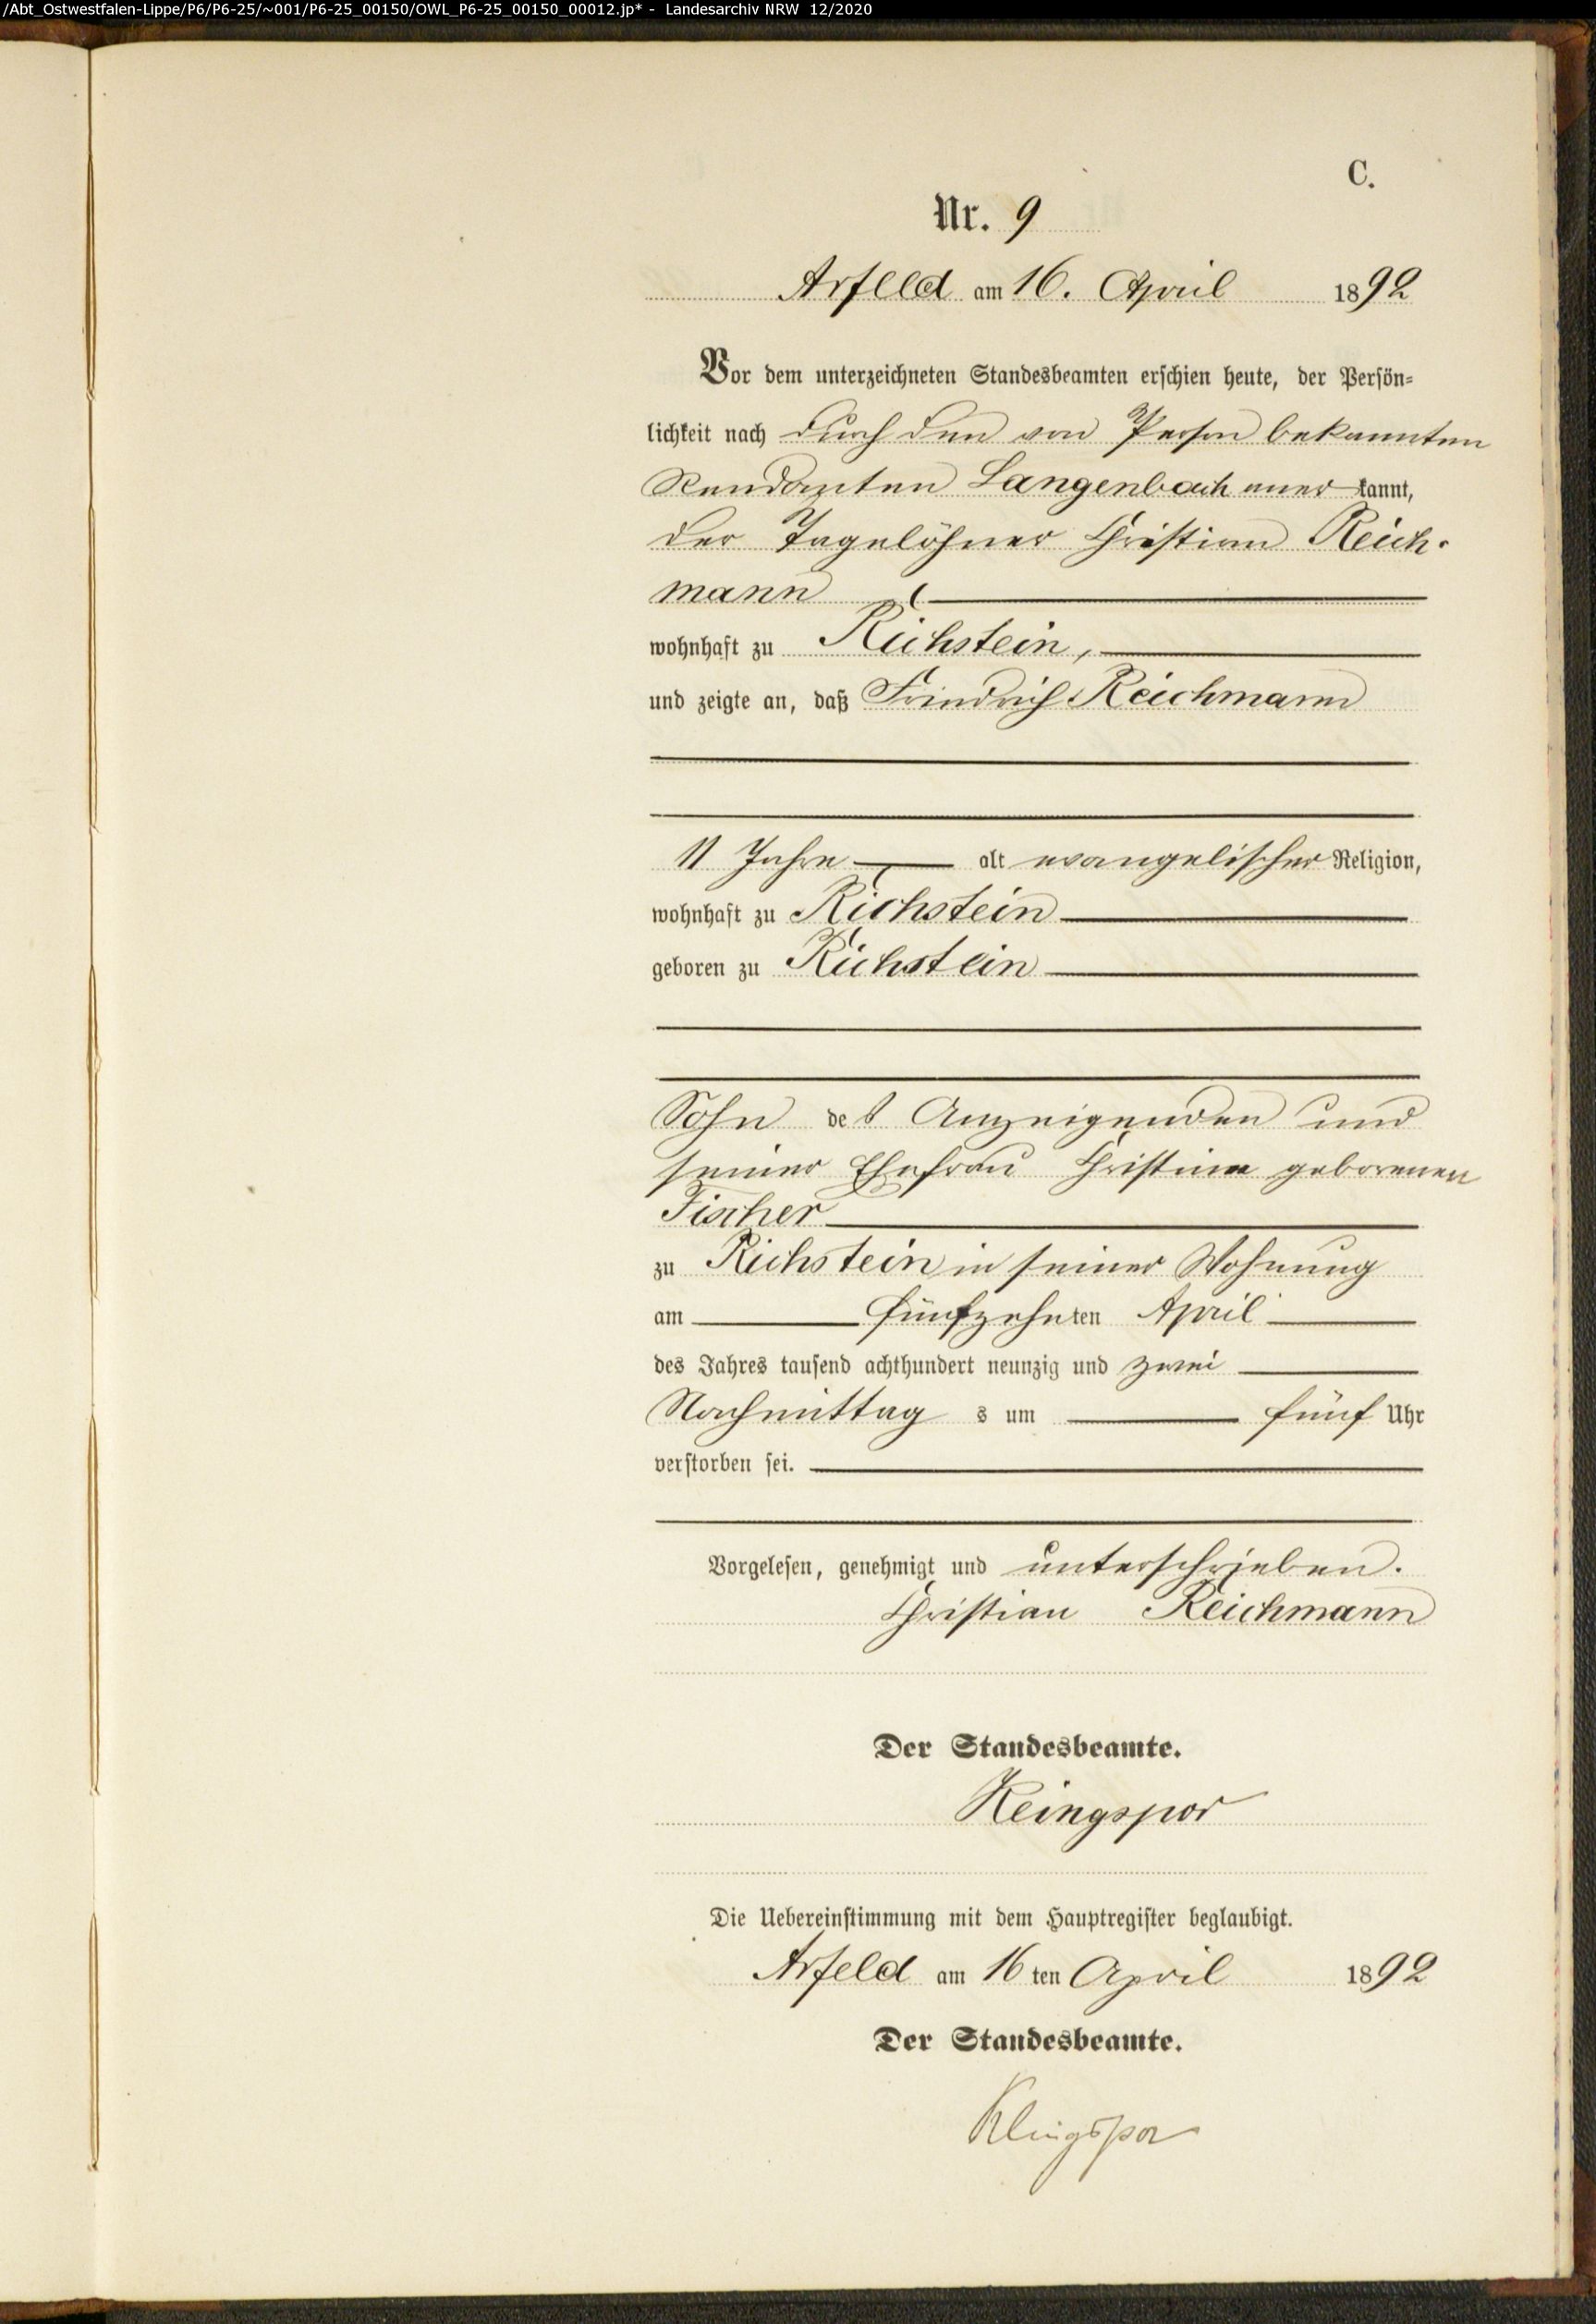 /Abt_Ostwestfalen-Lippe/P6/P6-25/~001/P6-25_00150/OWL_P6-25_00150_00012.jp* - Landesarchiv NRW 12/2020
C.
Nr. 9
Arfeld am 16. April 1892
Vor dem unterzeichneten Standesbeamten erschien heute, der Persön-
lichkeit nach durch den von Person bekannten
Rendanten Langenbach aner kannt,
der Tagelöhner Christian Reich-
mann
wohnhaft zu Richstein,
und zeigte an, daß Friedrich Reichmann
11 Jahre alt evangelischer Religion,
wohnhaft zu Richstein
geboren zu Richstein
Sohn des Anzeigenden und
seiner Ehefrau Christine geborenen
Fischer
zu Richstein in seiner Wohnung
am fünfzehnten April
des Jahres tausend achthundert neunzig und zwei
Nachmittag s um fünf Uhr
verstorben sei.
Vorgelesen, genehmigt und unterschrieben.
Christian Reichmann
Der Standesbeamte.
Klingspor
Die Uebereinstimmung mit dem Hauptregister beglaubigt.
Arfeld am 16 ten April 1892
Der Standesbeamte.
Klingspor